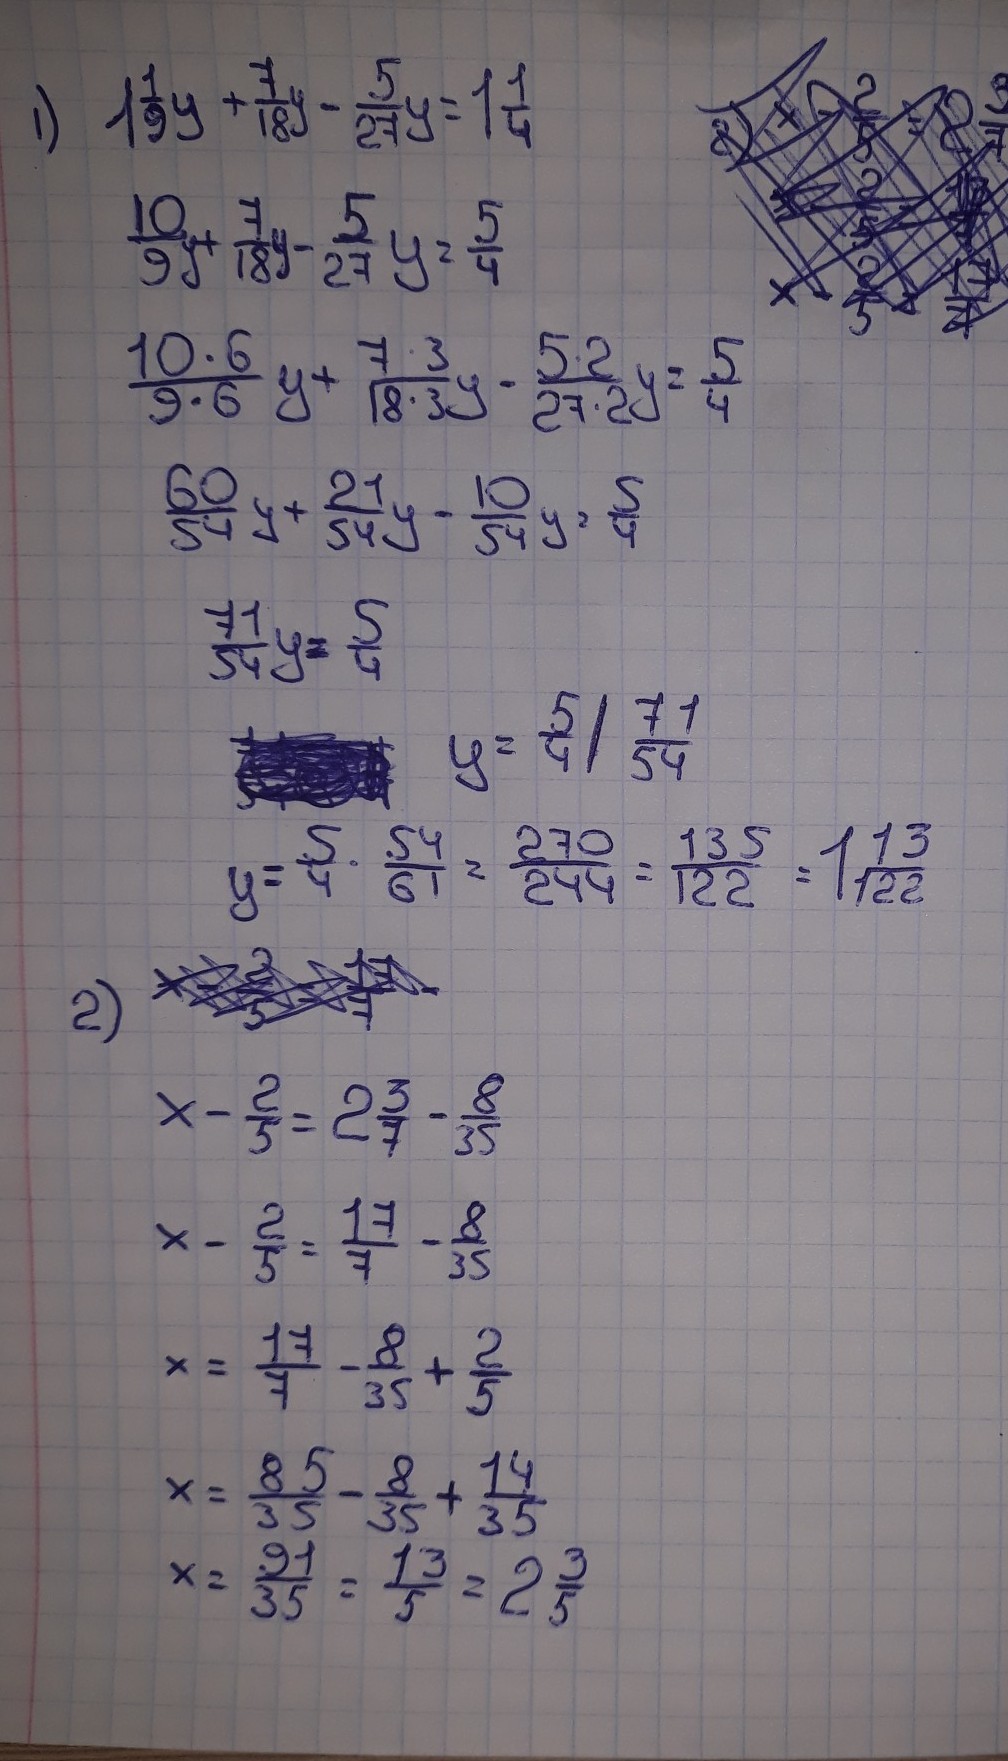 1) 1 1/9 y + 7/18 y - 5/27 y = 1 1/4
10/9 y + 7/18 y - 5/27 y = 5/4
10·6/9·6 y + 7·3/18·3 y - 5·2/27·2 y = 5/4
60/54 y + 21/54 y - 10/54 y = 5/4
71/54 y = 5/4
y = 5/4 / 71/54
y = 5/4 · 54/61 = 270/244 = 135/122 = 1 13/122
2)
x - 2/5 = 2 3/7 - 8/35
x - 2/5 = 17/7 - 8/35
x = 17/7 - 8/35 + 2/5
x = 85/35 - 8/35 + 14/35
x = 91/35 = 13/5 = 2 3/5